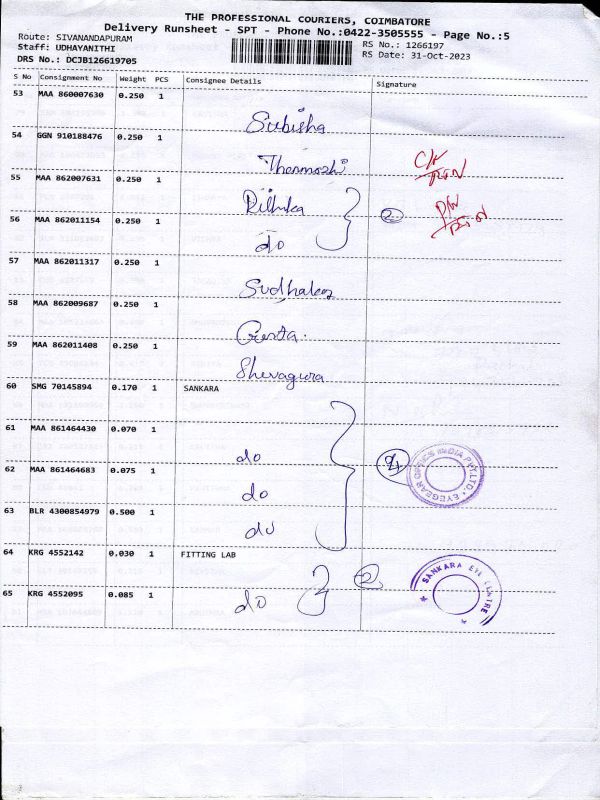 THE PROFESSIONAL COURIERS, COIMBATORE
Delivery Runsheet - SPT - Phone No.:0422-3505555 - Page No.:5
Route: SIVANANDAPURAM
Staff: UDHAYANITHI
DRS No.: DCJB126619705
RS No.: 1266197
RS Date: 31-Oct-2023
S No Consignment No Weight PCS Consignee Details Signature
53 MAA 860007630 0.250 1
Subisha
54 GGN 910188476 0.250 1
Thenmozhi
55 MAA 862007631 0.250 1
Rithika
56 MAA 862011154 0.250 1
do
2
57 MAA 862011317 0.250 1
Sudhakar
58 MAA 862009687 0.250 1
59 MAA 862011408 0.250 1
60 SMG 70145894 0.170 1 SANKARA
61 MAA 861464430 0.070 1
do
62 MAA 861464683 0.075 1
do
4
EYEGEAR OPTICS INDIA PVT.LTD.
63 BLR 4300854979 0.500 1
do
64 KRG 4552142 0.030 1 FITTING LAB
2
65 KRG 4552095 0.085 1
do
* SANKARA EYE CENTRE *